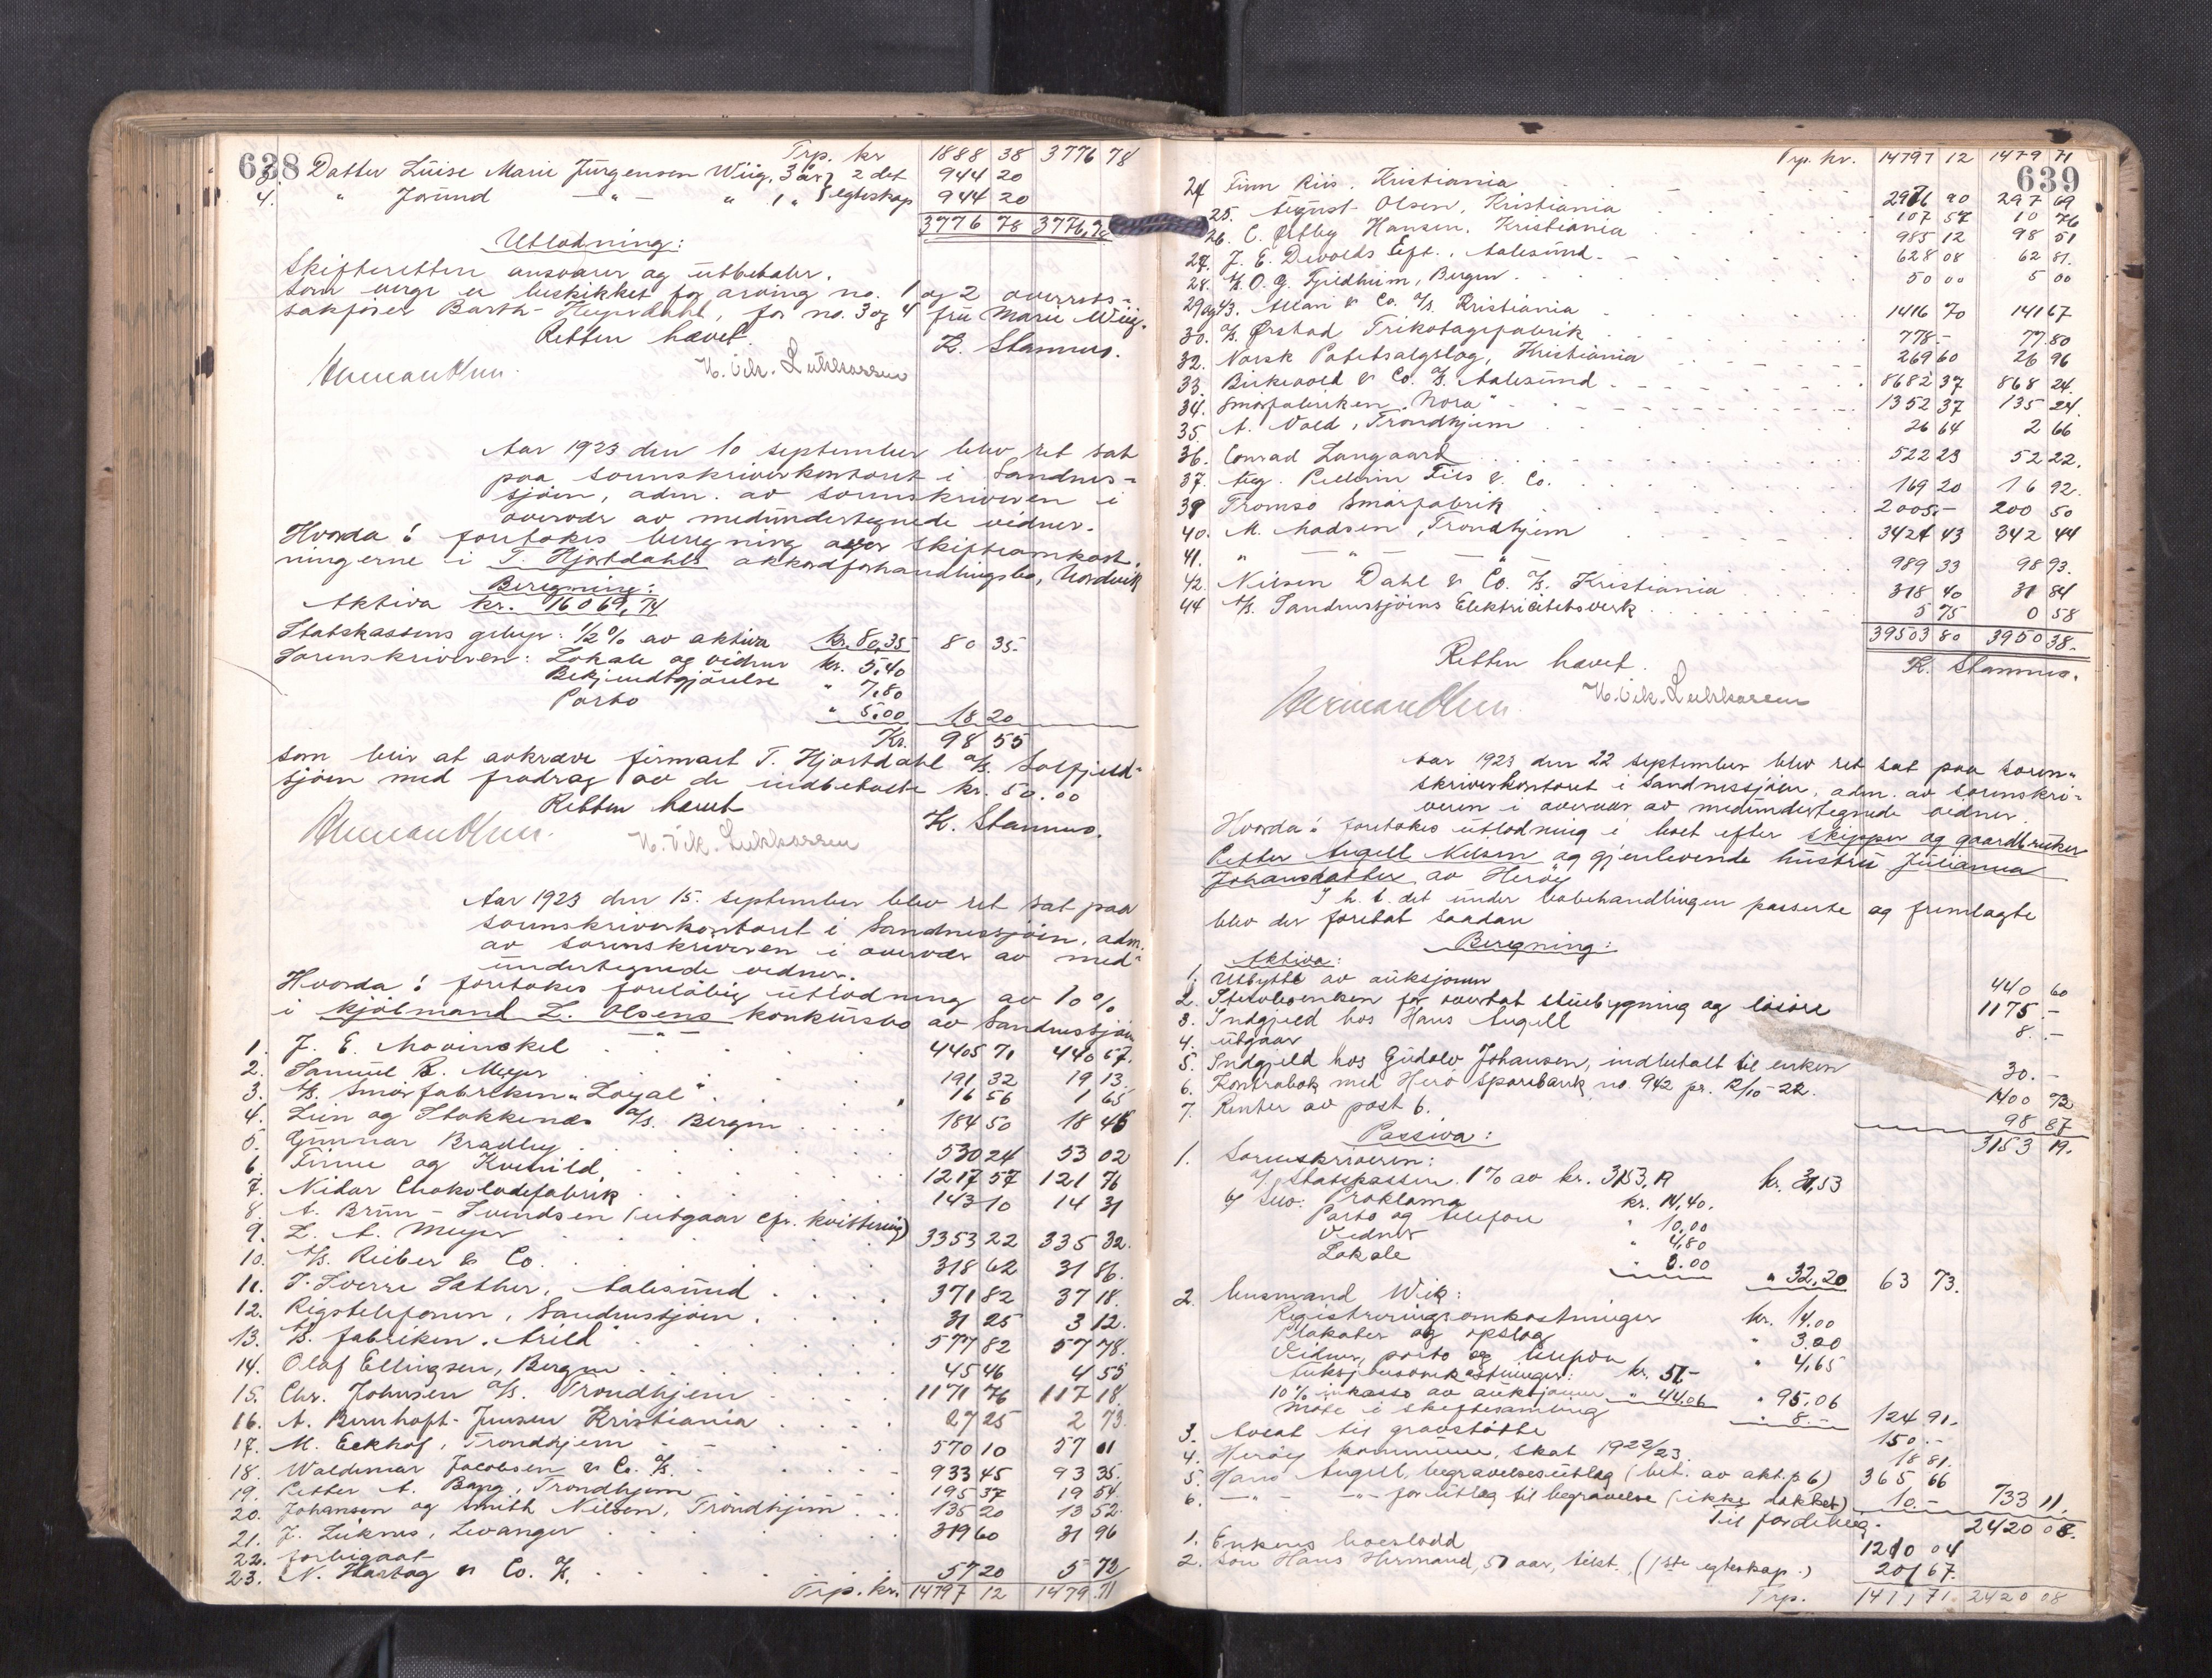 638
Trp. kr 1888 38 3776 78
3. Datter Luise Marie Jürgensen Wiig, 3 aar } 2 det 944 20
4. " Jorund —"— " 1 " } egteskap 944 20
3776 78 3776,78
Utlodning:
Skifteretten ansvarer og utbetaler.
Som verge er beskikket for arving no. 1 og 2 overrets-
sakfører Barth-Heyerdahl, for no. 3 og 4 fru Marie Wiig.
Retten hævet.
K. Stamnes.
Aar 1923 den 10 september blev ret sat
paa sorenskriverkontoret i Sandnes-
sjøen, adm. av sorenskriveren i
overvær av medundertegnede vidner.
Hvorda: foretokes beregning over skifteomkost-
ningerne i T. Hjortdahls akkordforhandlingsbo, Nordvik
Beregning:
Aktiva kr. 16069,74
Statskassens gebyr: 1/2 % av aktiva kr. 80,35 80 35
Sorenskriveren: Lokale og vidner kr. 5,40
Bekjendtgjørelse " 7,80
Porto " 5,00 18 20
Kr. 98 55
som blir at avkræve firmaet T. Hjortdahl a/s. Solfjeld-
sjøen med fradrag av de indbetalte kr. 50.00
Retten hævet
K. Stamnes.
Aar 1923 den 15. september blev ret sat paa
sorenskriverkontoret i Sandnessjøen, adm.
av sorenskriveren i overvær av med-
undertegnede vidner.
Hvorda: foretokes foreløbig utlodning av 10 %
i kjøbmand L. Olsens konkursbo av Sandnessjøen
1. J. E. Mowinckel 4405 71 440 57.
2. Samuel B. Meyer 191 32 19 13.
3. A/S. Smørfabriken "Loyal" 16 56 1 65
4. Lien og Stokkenæs a/s. Bergen 184 50 18 45
5. Gunnar Bradley 530 24 53 02
6. Finne og Kvenild 1217 57 121 76
7. Nidar Chokoladefabrik 143 10 14 31
8. A. Brun-Svendsen (utgaar cfr. kvittering)
9. L. A. Meyer 3353 22 335 32.
10. A/S. Rieber & Co. 318 62 31 86.
11. J. Sverre Sæther, Aalesund 371 82 37 18.
12. Rigstelefonen, Sandnessjøen 31 25 3 12.
13. A/S. fabriken "Arild" 577 82 57 78.
14. Olaf Ellingsen, Bergen 45 46 4 55
15. Chr. Johnsen a/s. Trondhjem 1171 76 117 18.
16. A. Bernhoft-Jensen Kristiania 27 25 2 73.
17. M. Eckhof, Trondhjem 570 10 57 01
18. Waldemar Jacobsen & Co. A/S. 933 45 93 35.
19. Petter A. Bang, Trondhjem 195 37 19 54.
20. Johansen og Smith Nilsen, Trondhjem 135 20 13 52.
21. J. Leknes, Levanger 319 60 31 96
22. forbigaat
23. N. Hartog & Co. A/S. 57 20 5 72
Trp. kr. 14797 12 1479 71
639
Trp. kr. 14797 12 1479 71
24 Finn Riis, Kristiania 2976 90 297 69
25. August Olsen, Kristiania 107 57 10 76
26. C. Østby Hansen, Kristiania 985 12 98 51
27. J. E. Devolds Eft., Aalesund 628 08 62 81.
28. A/S. O. G. Fjeldheim, Bergen 50 00 5 00
29 og 43. & Co. A/S. Kristiania 1416 70 141 67
30. A/S. Ørstad Trikotagefabrik 778.- 77.80
32. Norsk Potetsalgslag, Kristiania 269 60 26 96
33. Birkevold & Co. A/S. Aalesund 8682 37 868 24.
34. Smørfabriken "Nora" 1352 37 135 24.
35. A. Vold, Trondhjem 26 64 2 66
36. Conrad Langaard 522 23 52 22.
37. Aug. Pellerin Fils & Co. 169 20 16 92.
39 Tromsø Smørfabrik 2005.- 200 50
40. M. Madsen, Trondhjem 3424 43 342 44
41. " —"— —"— 989 33 98 93.
42. Nilsen Dahl & Co. A/S. Kristiania 318 40 31 84
44 A/S. Sandnessjøens Elektricitetsverk 5 75 0 58
39503 80 3950 38.
Retten hævet.
K. Stamnes.
Aar 1923 den 22 september blev ret sat paa soren-
skriverkontoret i Sandnessjøen, adm. av sorenskri-
veren i overvær av medundertegnede vidner.
Hvorda: foretokes utlodning i boet efter skipper og gaardbruker
Petter Angell Nilsen og gjenlevende hustru Julianna
Johansdatter av Herøy
I h. t. det under bobehandlingen passerte og fremlagte
blev der foretat saadan
Beregning:
Aktiva:
1. Utbytte av auksjonen 440 60
2. Stervboenken for overtat stuebygning og løsøre 1175.-
3. Indgjeld hos Hans Angell 8.-
4. utgaar
5. Indgjeld hos Gudolv Johansen, indbetalt til enken 30.-
6. Kontrabok med Herø Sparebank no. 942 pr. 12/10-22. 1400 72
7. Renter av post 6. 98 87
3153 19.
Passiva:
1. Sorenskriveren:
a/ Statskassen 1% av kr. 3153,19 kr. 31,53
b/ Proklama kr. 14,40.
Porto og telefon " 10,00
Vidner " 4,80
Lokale " 3.00 " 32,20 63 73.
2. lensmand Wik:
Registreringsomkostninger kr. 14.00
Plakater og opslag " 3.20
Vidner, porto og telefon " 4,65
Auksjonsomkostninger: kr. 51-
10% inkasso av auksjonen " 44.06 " 95,06
Møte i skiftesamling " 8.- 124 91.
3. Avsat til gravstøtte 150.-
4. Herøy kommune, skat 1922/23. 18 81.
5. Hans Angell, begravelsesutlæg (bet. av akt. p. 6) 365 66
6. —"— —"— for utlæg til begravelse (ikke dækket) 10.- 733 11.
Til fordeling. 2420 08.
1. Enkens boeslodd 1210 04
2. Søn Hans Hermand, 50 aar, (1ste egteskap.) 201 67.
Trp. 1411 71. 2420 08